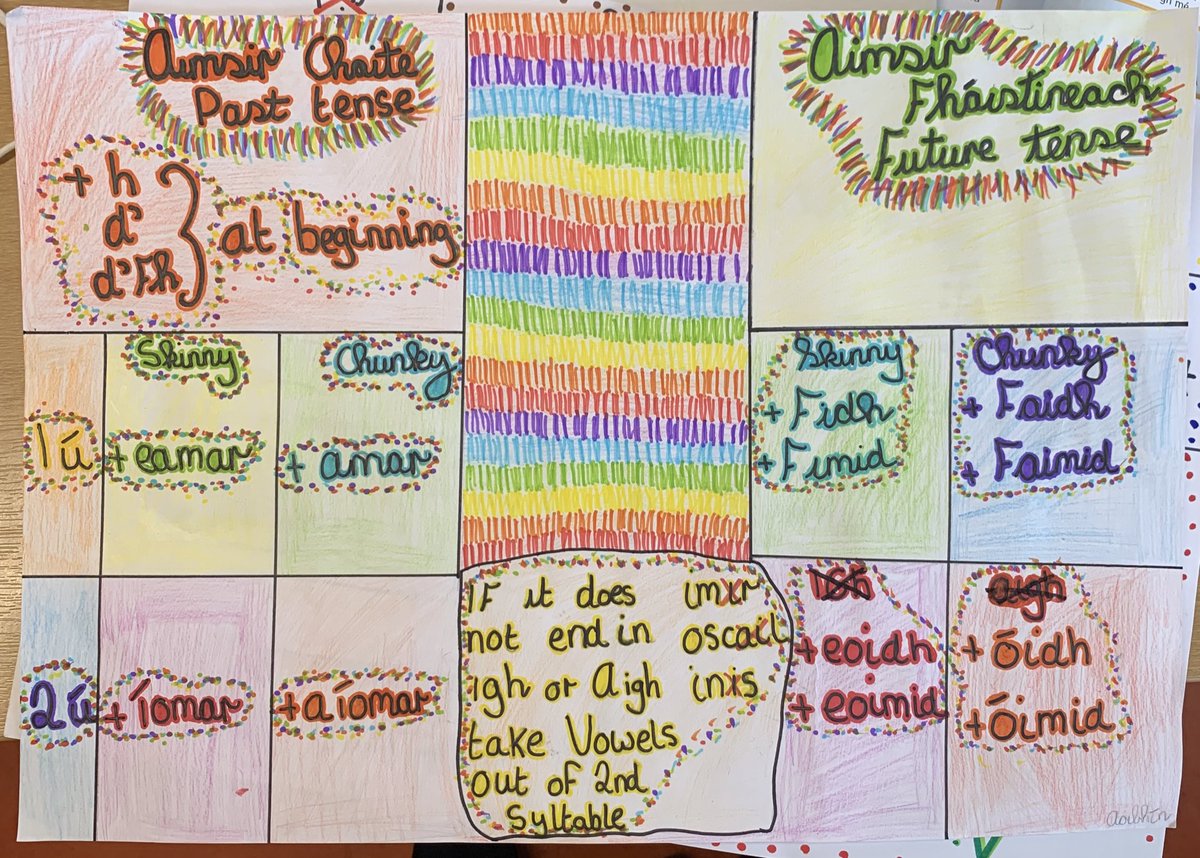 Aimsir Chaite
Past tense
+ h
d'
d'Fh
at beginning
Skinny
Chunky
1ú
+eamar
+ amar
2ú
+íomar
+aíomar
Aimsir
Fháistineach
Future tense
Skinny
+ Fidh
+ Fimid
Chunky
+ Faidh
+ Faimid
IF it does imir
not end in oscail
igh or Aigh inis
take Vowels
out of 2nd
Syltable
igh
+eoidh
+eoimid
aigh
+óidh
+óimid
Aoibhín